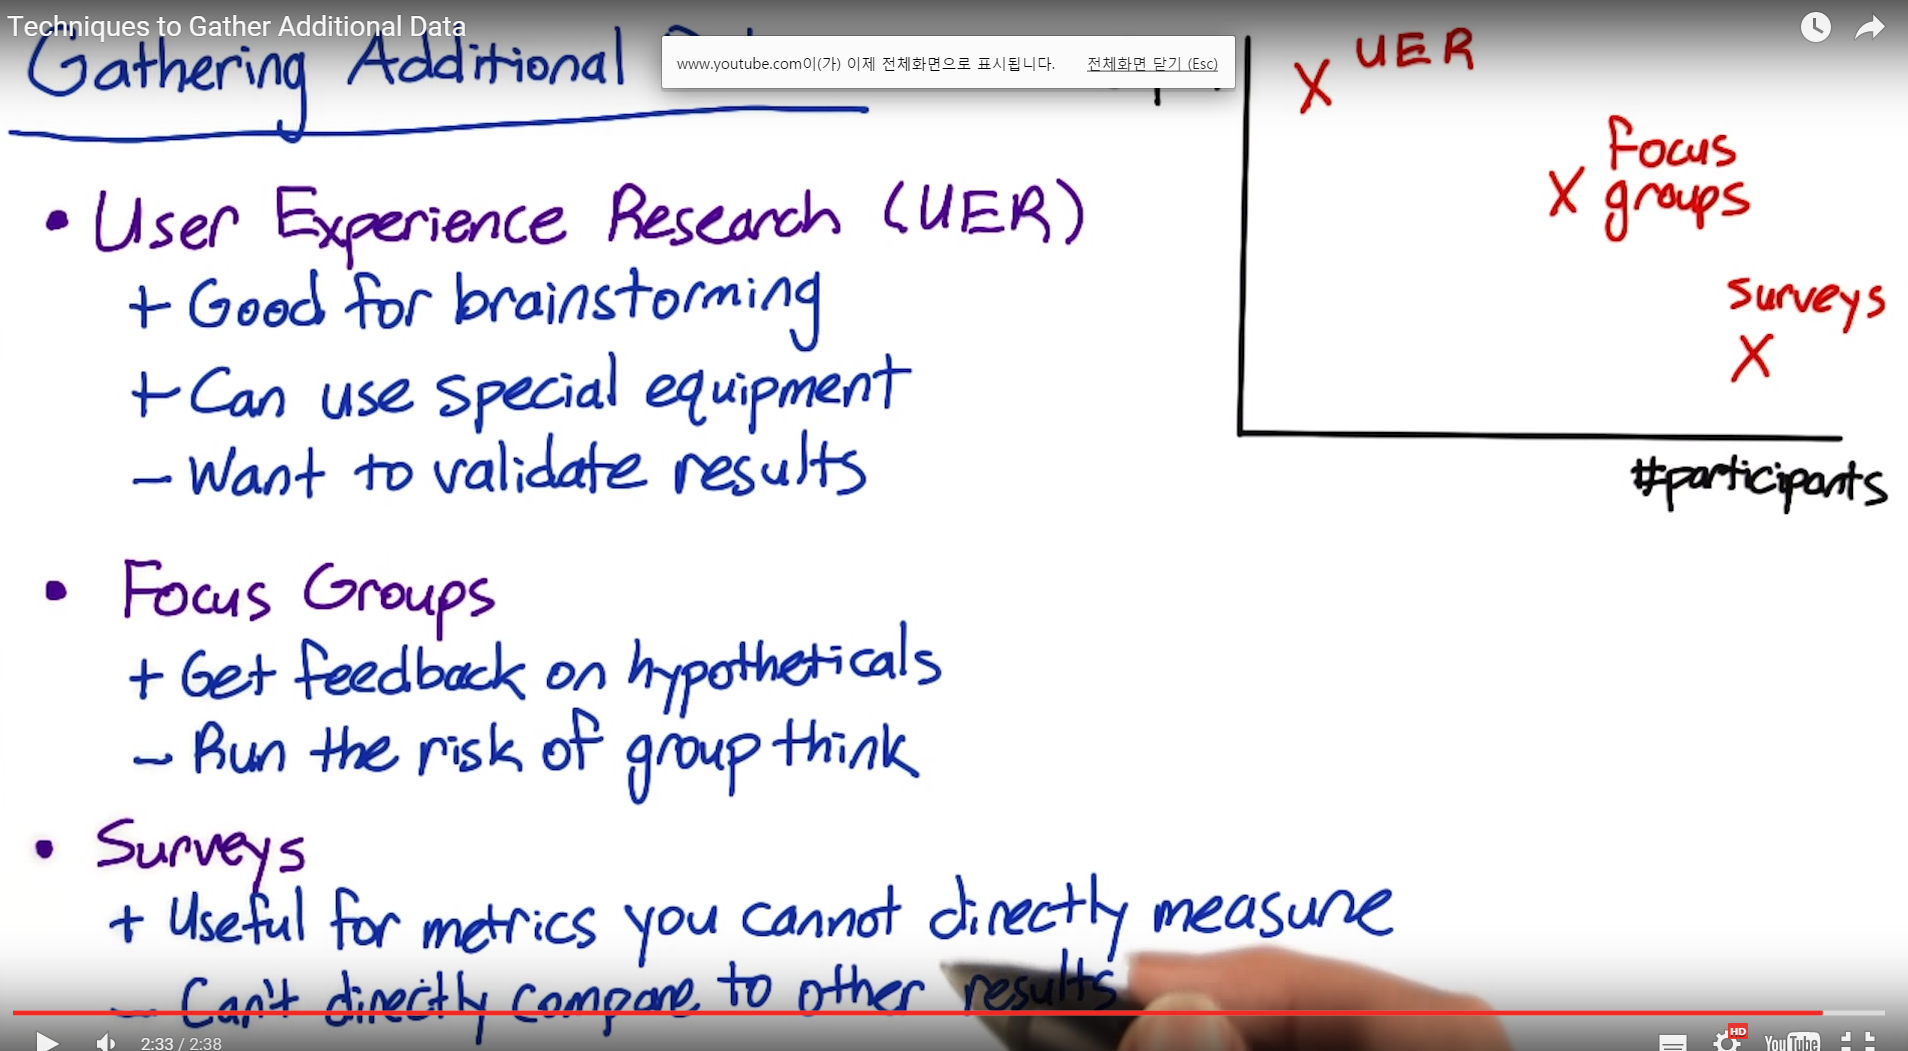 Techniques to Gather Additional Data
Gathering Additional
www.youtube.com이(가) 이제 전체화면으로 표시됩니다. 전체화면 닫기 (Esc)
• User Experience Research (UER)
+ Good for brainstorming
+ Can use special equipment
- Want to validate results
• Focus Groups
+ Get feedback on hypotheticals
- Run the risk of group think
• Surveys
+ Useful for metrics you cannot directly measure
- Can't directly compare to other results
X UER
Focus
X groups
surveys
X
#participants
2:33 / 2:38
HD
YouTube